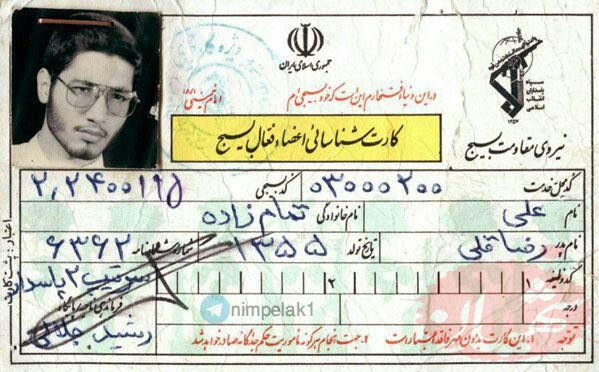 جمهوری اسلامی ایران
سپاه
پاسداران
انقلاب
اسلامی
۱۳۵۷
در این دنیا افتخارم این است که خود بسیجی‌ام
امام خمینی
نیروی مقاومت بسیج
کارت شناسائی اعضاء فعال بسیج
کد محل خدمت ۰۳۰۰۰۲۰۰ کد بسیجی
نام علی نام خانوادگی تمام زاده
نام پدر رضا قلی تاریخ تولد ۱۳۵۵ شماره شناسنامه ۶۳۶۲
کد وظیفه ۱ ۲
سرتیپ ۲ پاسدار
درجه
فرماندهی
رشید جلالی
nimpelak1
توجه ۱. این کارت بدون مهر فاقد اعتبار است ۲. جهت انجام هرگونه مأموریت حکم جداگانه صادر خواهد شد
اعتبار: پشت کارت